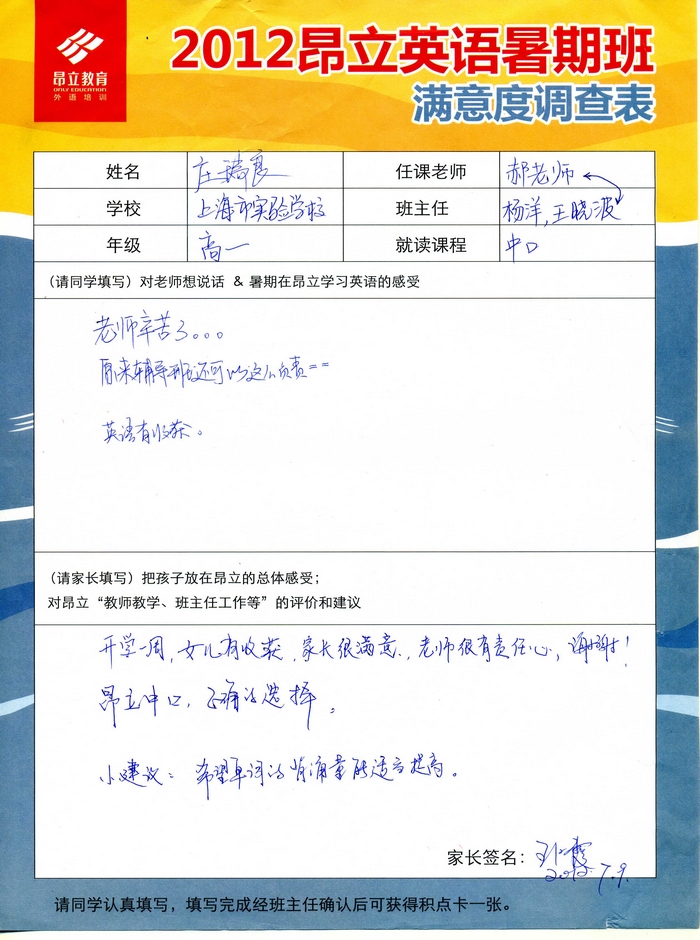 昂立教育
ONLY EDUCATION
外语培训
2012昂立英语暑期班
满意度调查表
姓名 庄瑞良 任课老师 郝老师
学校 上海市实验学校 班主任 杨洋,王晓波
年级 高一 就读课程 中口
(请同学填写)对老师想说话 & 暑期在昂立学习英语的感受
老师辛苦了。。。
原来辅导班还可以这么负责==
英语有收获。
(请家长填写)把孩子放在昂立的总体感受;
对昂立“教师教学、班主任工作等”的评价和建议
开学一周,女儿有收获,家长很满意,老师很有责任心,谢谢!
昂立中口,正确的选择。
小建议:希望单词的背诵量能适当提高。
家长签名:
2012.7.9.
请同学认真填写,填写完成经班主任确认后可获得积点卡一张。